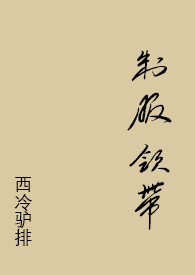 制服领带
西冷驴排